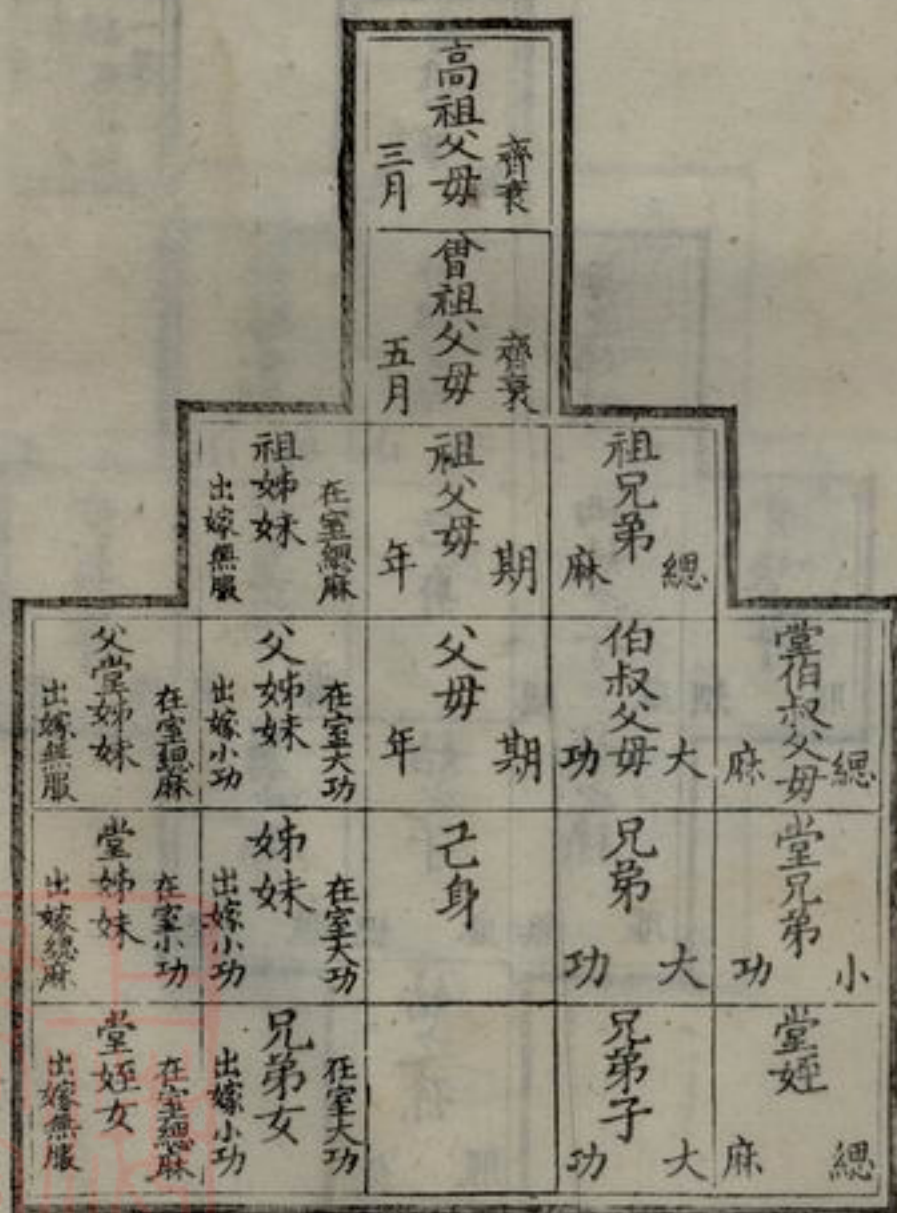 高祖父母 齊衰三月
曾祖父母 齊衰五月
祖兄弟 緦麻
祖父母 期年
祖姊妹 在室緦麻 出嫁無服
堂伯叔父母 緦麻
伯叔父母 大功
父母 期年
父姊妹 在室大功 出嫁小功
父堂姊妹 在室緦麻 出嫁無服
堂兄弟 小功
兄弟 大功
己身
姊妹 在室大功 出嫁小功
堂姊妹 在室小功 出嫁緦麻
堂姪 緦麻
兄弟子 大功
兄弟女 在室大功 出嫁小功
堂姪女 在室緦麻 出嫁無服